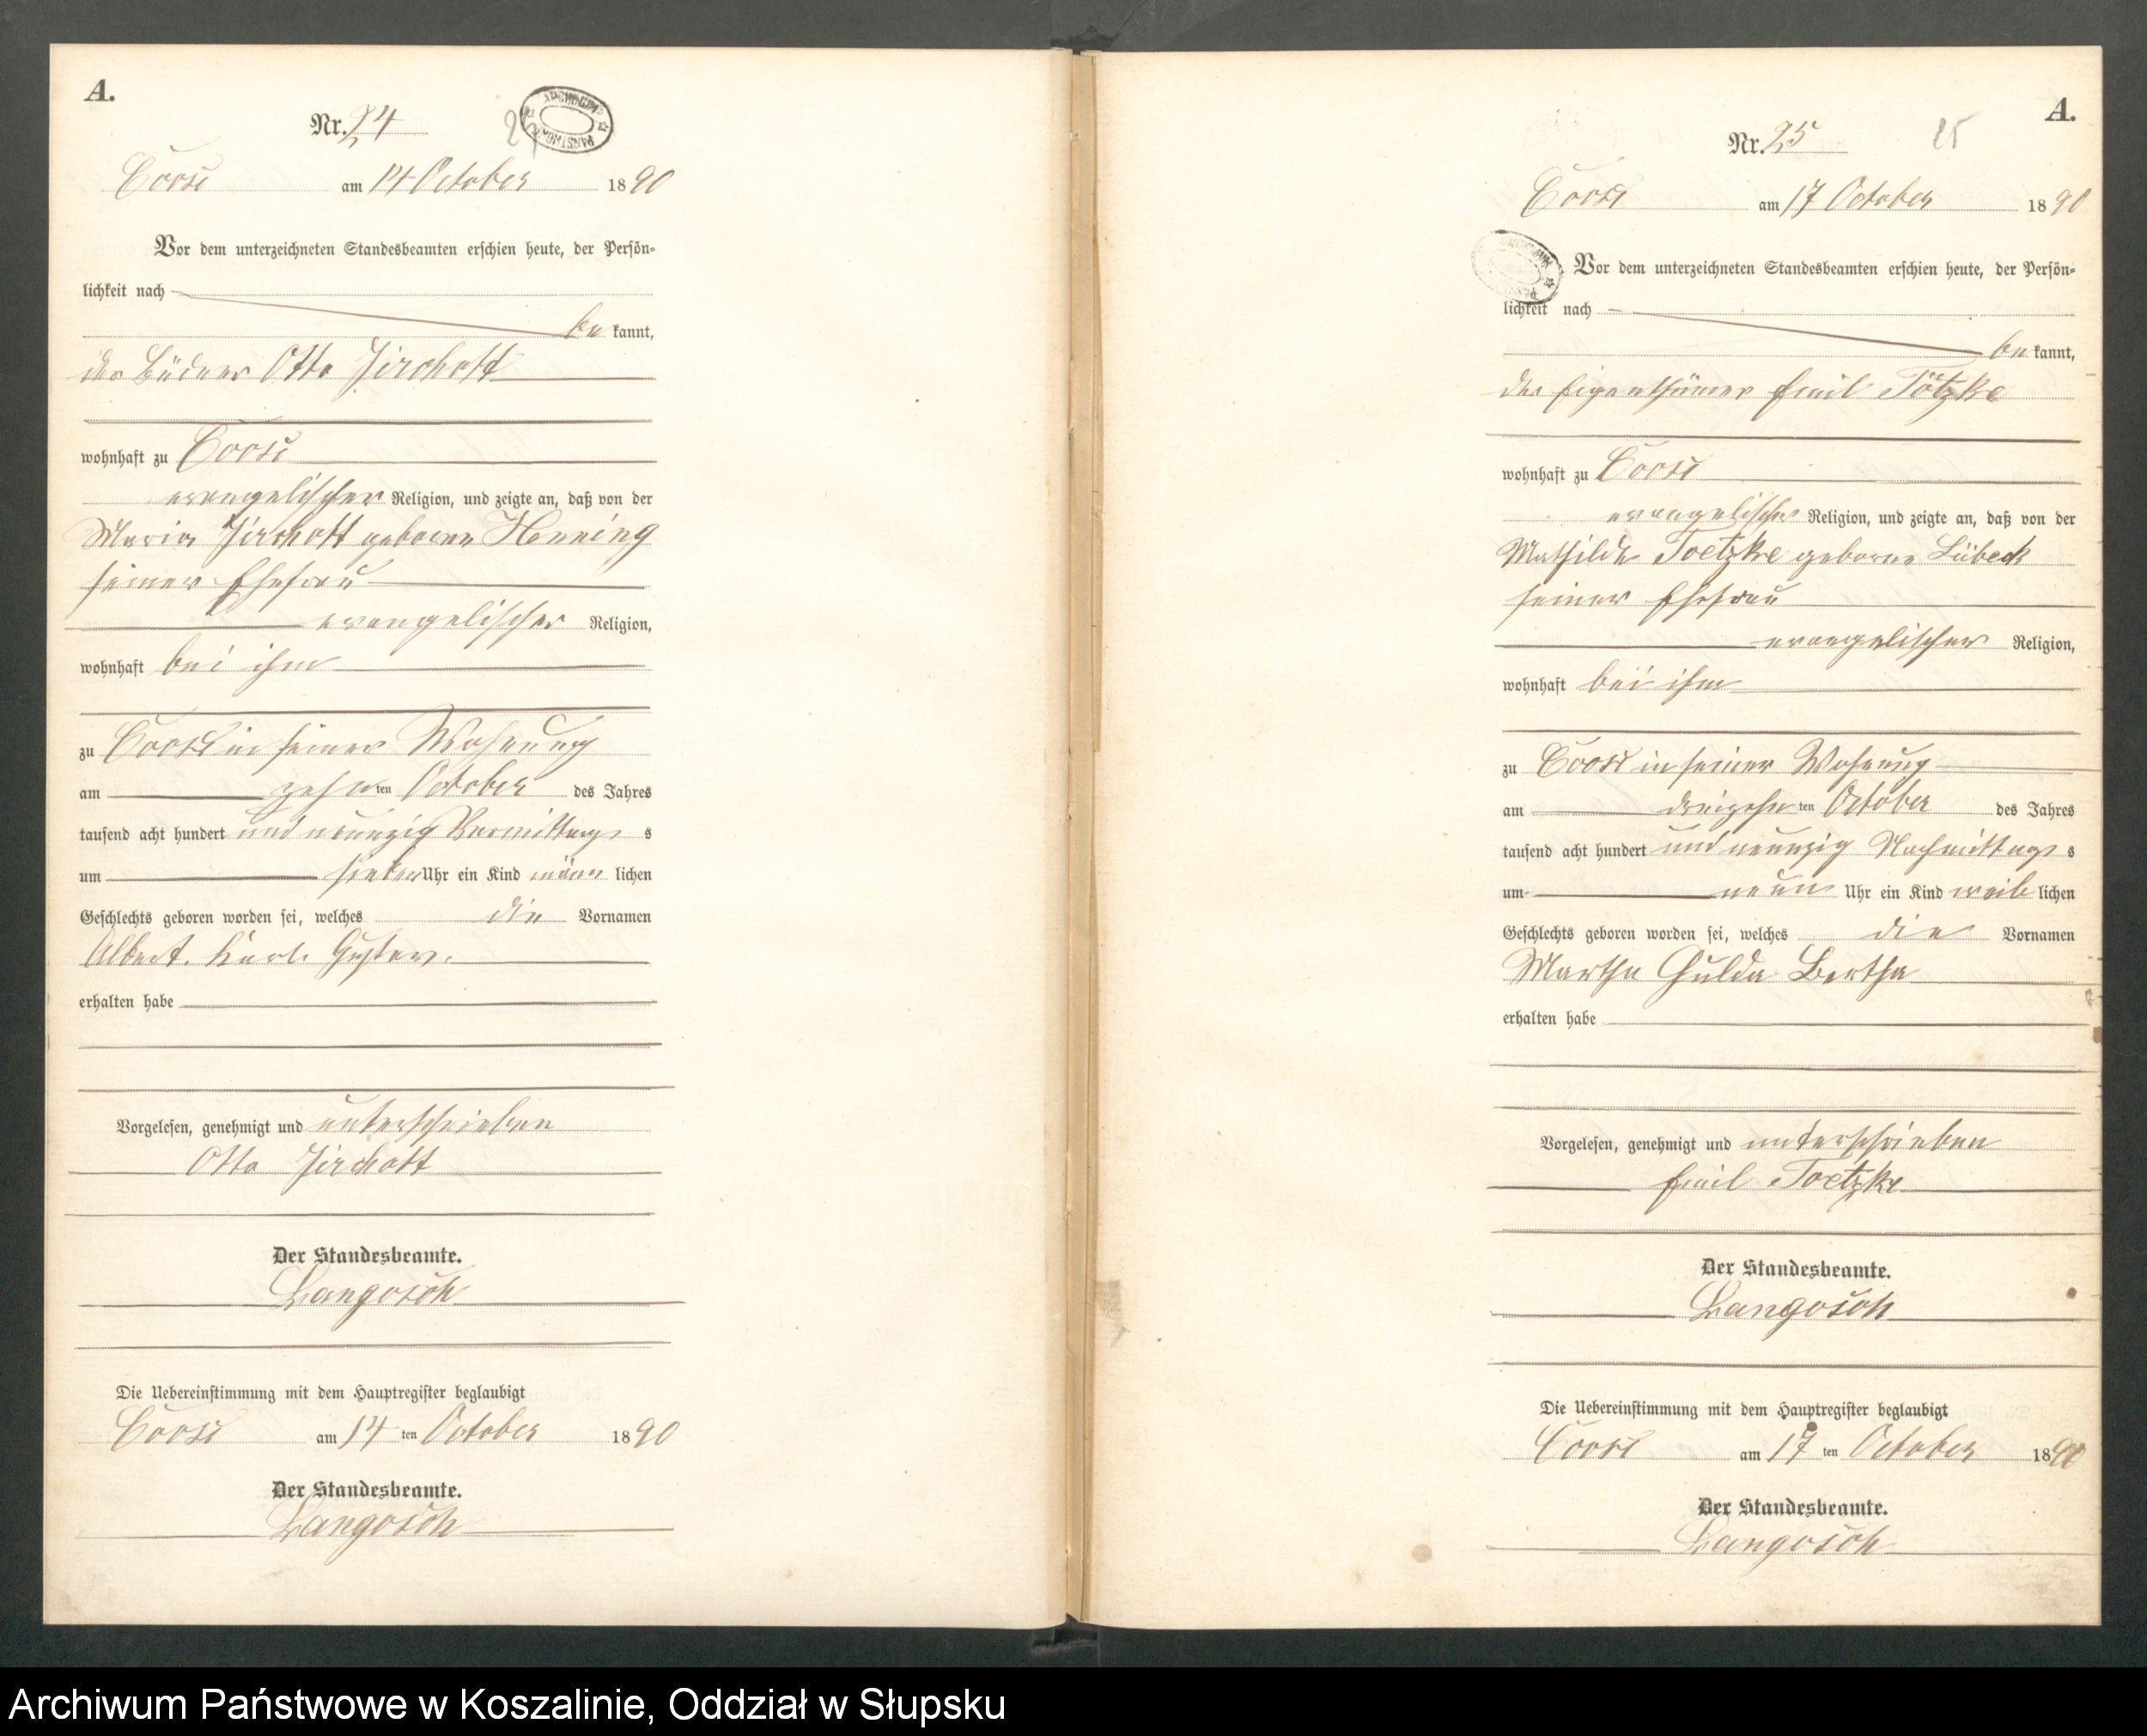 A.
Nr. 24
24
Coose am 14 October 1890
Vor dem unterzeichneten Standesbeamten erschien heute, der Persön-
lichkeit nach
be kannt,
der Büdner Otto Jirchott
wohnhaft zu Coose
evangelischer Religion, und zeigte an, daß von der
Maria Jirchott geborene Henning
seiner Ehefrau
evangelischer Religion,
wohnhaft bei ihm
zu Coose in seiner Wohnung
am zehnten October des Jahres
tausend acht hundert und neunzig Vormittags
um sieben Uhr ein Kind männlichen
Geschlechts geboren worden sei, welches die Vornamen
Albert. Karl. Gustav.
erhalten habe
Vorgelesen, genehmigt und unterschrieben
Otto Jirchott
Der Standesbeamte.
Langosch
Die Uebereinstimmung mit dem Hauptregister beglaubigt
Coose am 14 ten October 1890
Der Standesbeamte.
Langosch
A.
Nr. 25
25
Coose am 17 October 1890
Vor dem unterzeichneten Standesbeamten erschien heute, der Persön-
lichkeit nach
be kannt,
der Eigenthümer Emil Toetzke
wohnhaft zu Coose
evangelischer Religion, und zeigte an, daß von der
Mathilde Toetzke geborne Lübeck
seiner Ehefrau
evangelischer Religion,
wohnhaft bei ihm
zu Coose in seiner Wohnung
am dreizehnten October des Jahres
tausend acht hundert und neunzig Nachmittags
um neun Uhr ein Kind weiblichen
Geschlechts geboren worden sei, welches die Vornamen
Martha Hulda Bertha
erhalten habe
Vorgelesen, genehmigt und unterschrieben
Emil Toetzke
Der Standesbeamte.
Langosch
Die Uebereinstimmung mit dem Hauptregister beglaubigt
Coose am 17 ten October 1890
Der Standesbeamte.
Langosch
Archiwum Państwowe w Koszalinie, Oddział w Słupsku